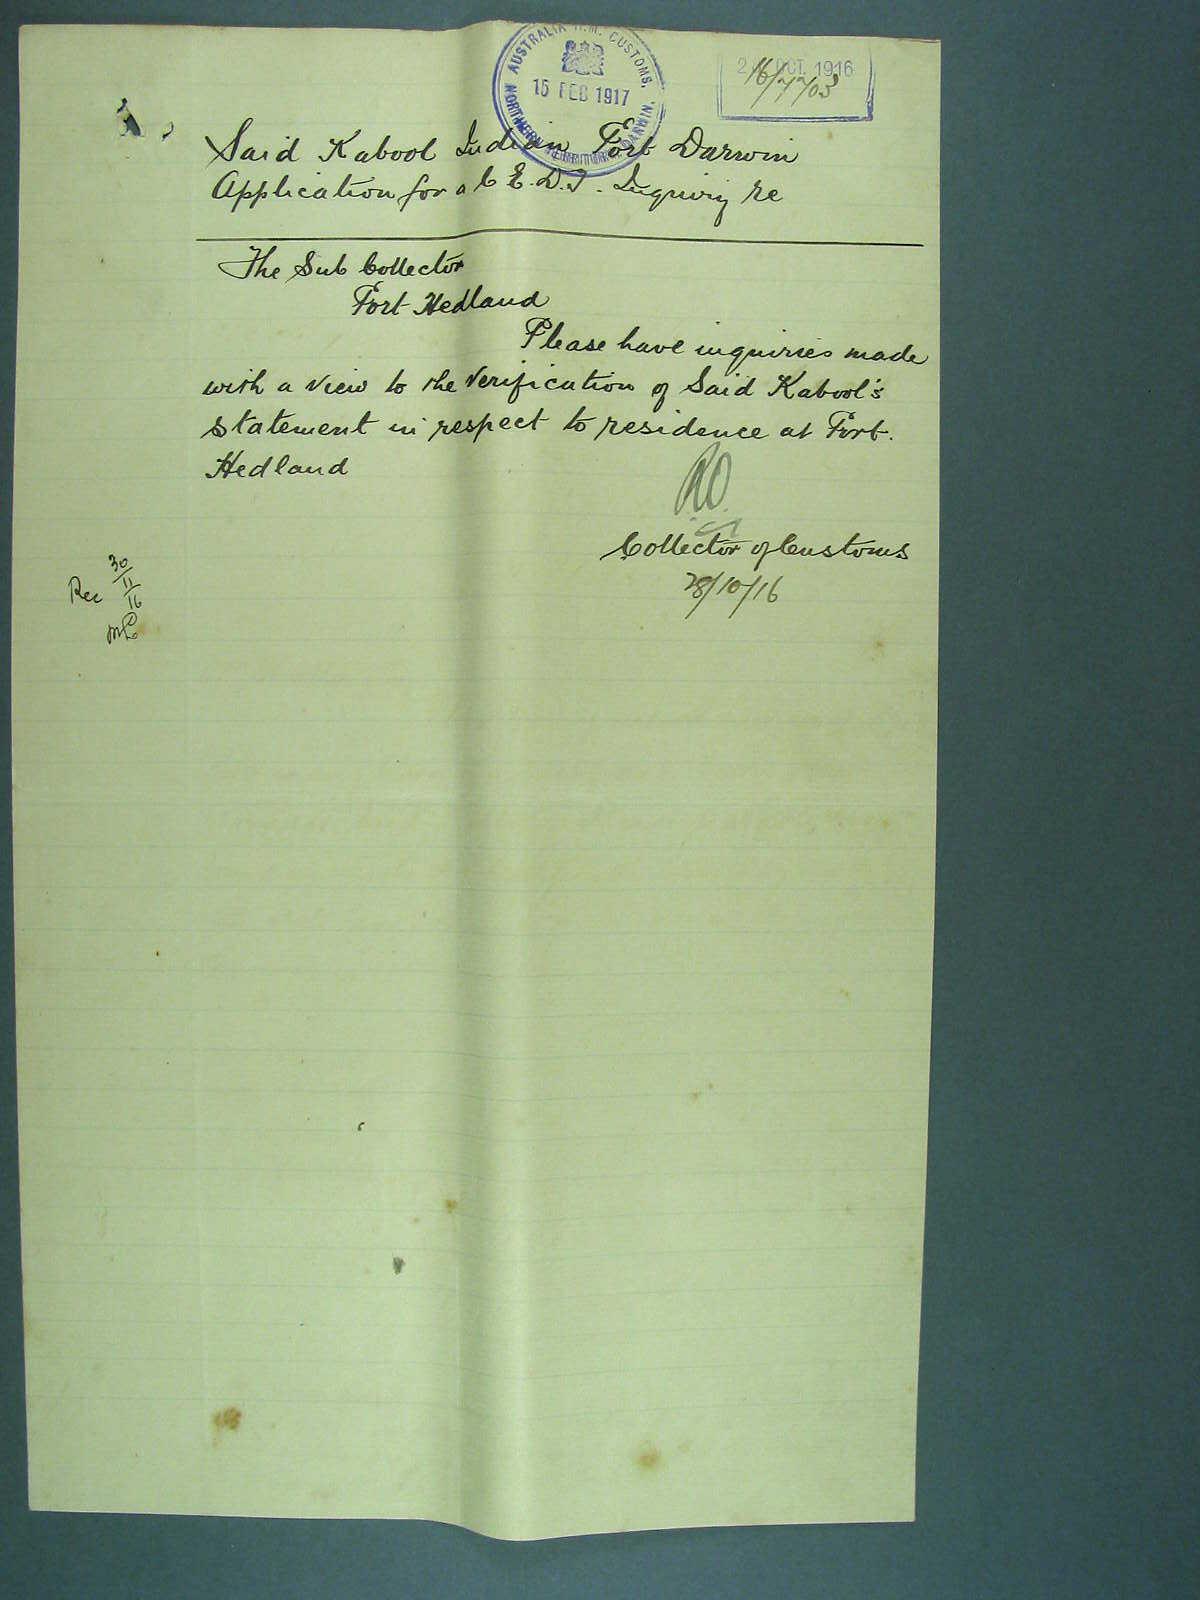 AUSTRALIA H.M. CUSTOMS.
15 FEB 1917
NORTHERN TERRITORY. DARWIN.
OCT. 1916
16/7703
Said Kabool Indian Port Darwin
Application for a C.E.D.T. Inquiry re
The Sub Collector
Port Hedland
Please have inquiries made
with a view to the verification of Said Kabool's
statement in respect to residence at Port
Hedland
Collector of Customs
28/10/16
Rec 30/11/16